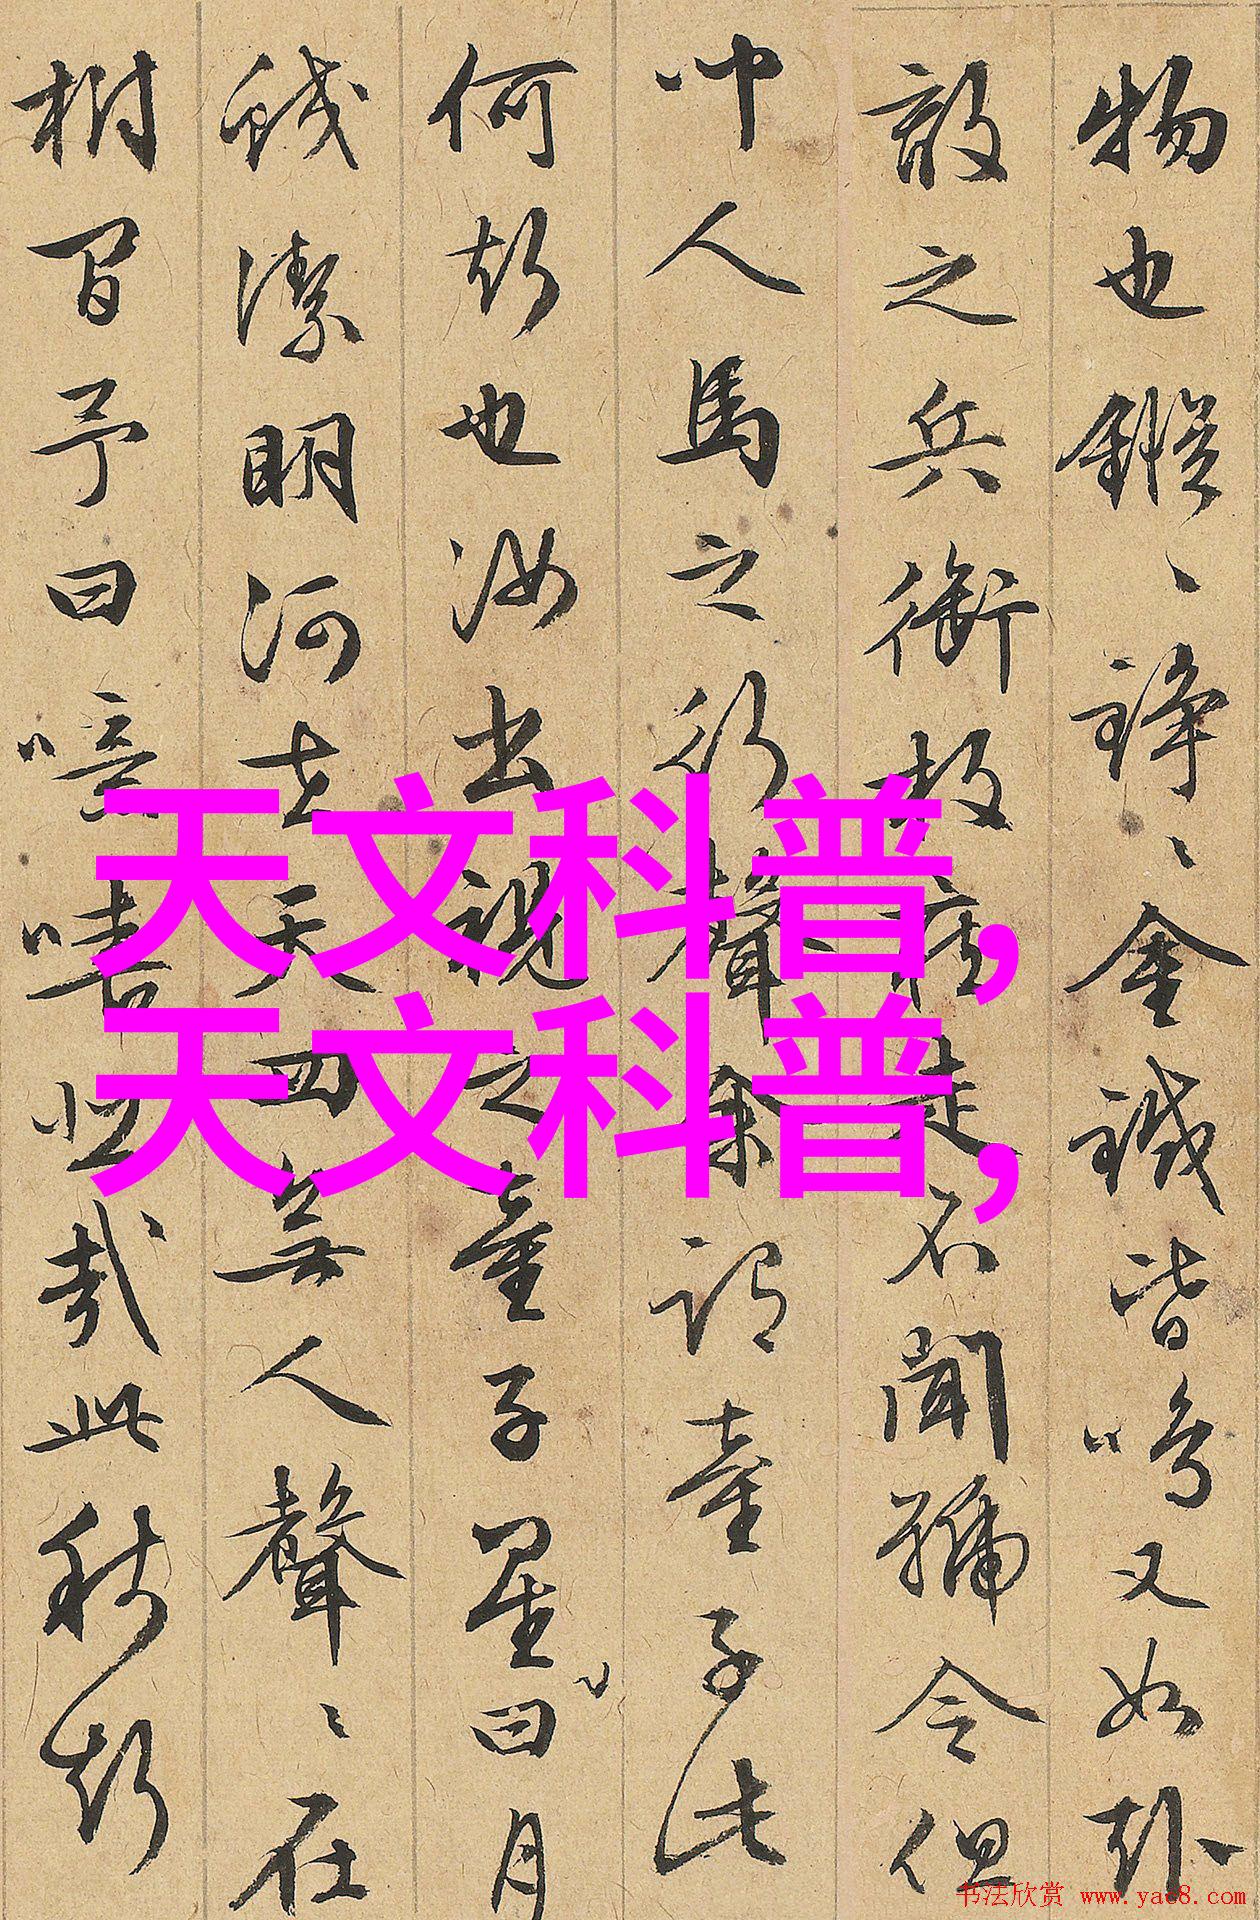 物也鏦〻錚〻金鐵皆鳴又如赴
敵之兵銜枚疾走不聞號令但
聞人馬之行聲余謂童子此
何聲也汝出視之童子曰星月
皎潔明河在天四無人聲〻在
樹間予曰噫嘻悲哉此秋聲
天文科普,
天文科普,
书法欣赏 www.yac8.com